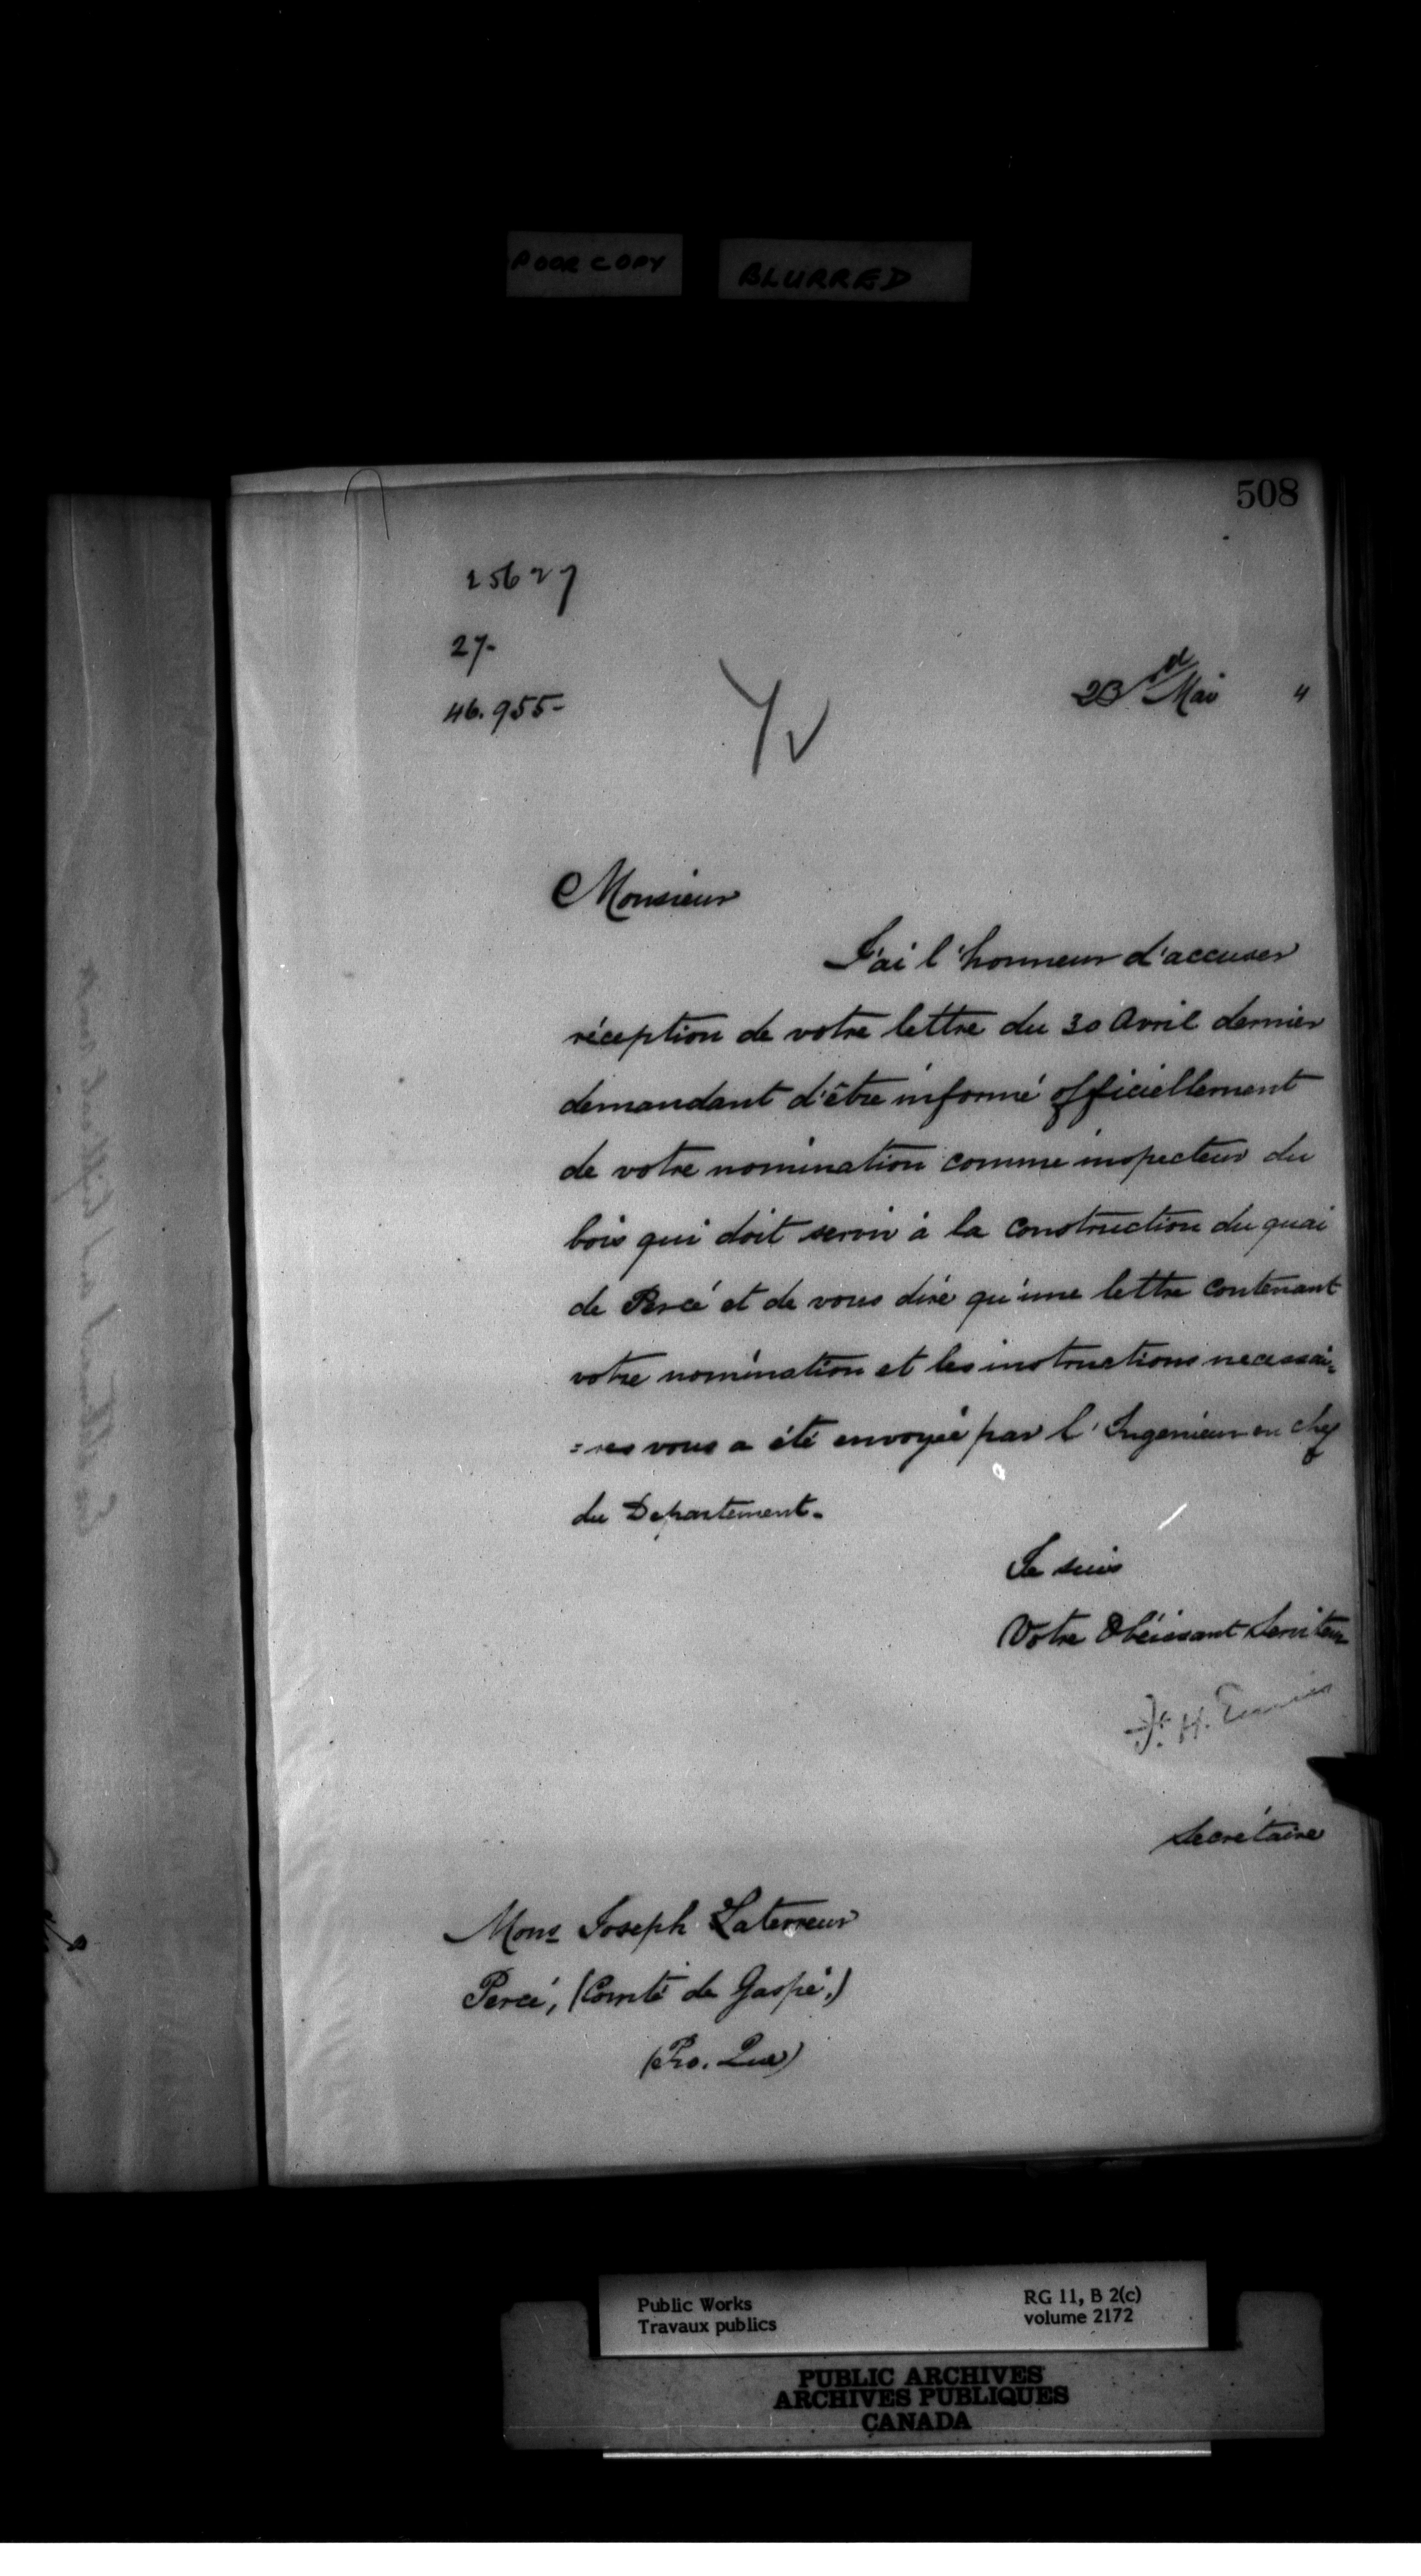 POOR COPY BLURRED
508
25627
27-
46.955-
23rd Mai 4
Monsieur
J'ai l'honneur d'accuser
réception de votre lettre du 30 Avril dernier
demandant d'être informé officiellement
de votre nomination comme inspecteur du
bois qui doit servir à la construction du quai
de Percé et de vous dire qu'une lettre contenant
votre nomination et les instructions necessai=
=res vous a été envoyée par l'Ingenieur en chef
du Departement.
Je suis
Votre Obéissant Serviteur
Fr. H. Ennis
Secrétaire
Mons Joseph Laterreur
Percé, (Comté de Gaspé,)
(Pro. Que)
Public Works RG 11, B 2(c)
Travaux publics volume 2172
PUBLIC ARCHIVES
ARCHIVES PUBLIQUES
CANADA